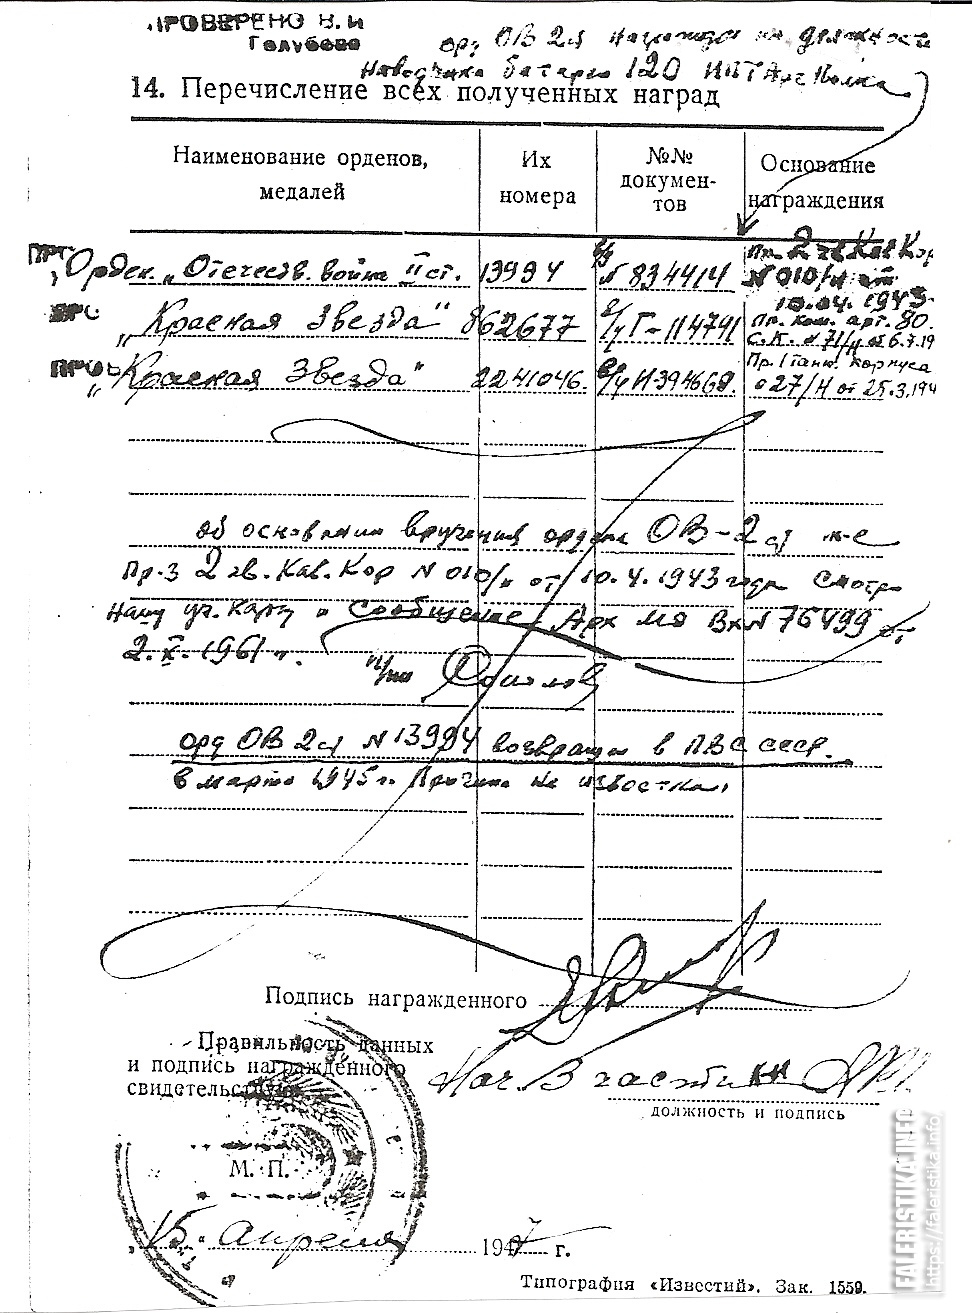 ПРОВЕРЕНО В. И
Голубева
орд ОВ 2 ст на должности
Наводчика батареи 120
14. Перечисление всех полученных наград
Наименование орденов, медалей
Их номера
№№ документов
Основание награждения
Орден. „Отечеств. война II ст. 13994 834414 Пр. 2 гв. Кав Кор
N 010/н от
10.04. 1943
„Красная Звезда" 862677 Г-114741 Пр. ком. арт. 80.
С.К. 71/н от 6.7.19
„Красная Звезда" 2241046. И-394668. Пр. 1 танк. корпуса
27/н от 25.3.194
об основании вручения ордена ОВ-2 ст
Пр-з 2 гв. Кав. Кор N 010/н от 10.4.1943 года смотри
уч. карту и сообщение Арх Вх N 76499 от
2.X.1961 г.
орд ОВ 2 ст N 13994 возвращен в ПВС СССР.
в марте 1945 г. Причина не известна
Подпись награжденного
Правильность данных
и подпись награжденного
свидетельствую
Нач. В части
должность и подпись
М. П.
15. апреля 1947 г.
Типография «Известий». Зак. 1559.
FALERISTIKA.INFO
https://faleristika.info/